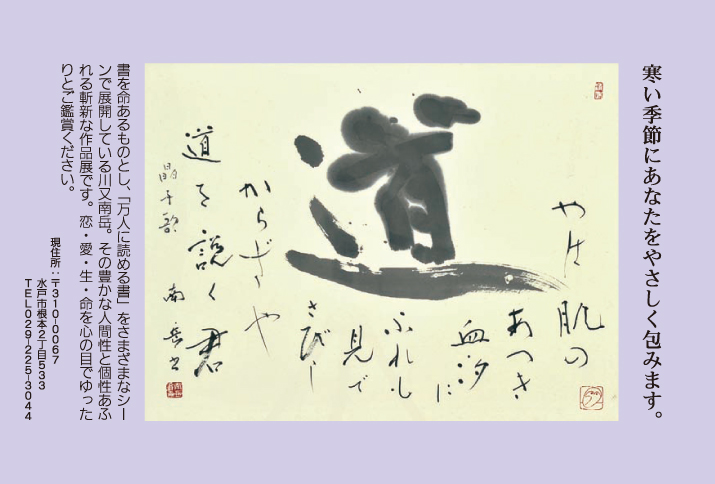 寒い季節にあなたをやさしく包みます。
やは
肌の
あつき
血汐に
ふれも
見で
さびし
からずや
道
道を説く君
晶子歌
南岳書
書を命あるものとし、「万人に読める書」をさまざまなシー
ンで展開している川又南岳。その豊かな人間性と個性あふ
れる斬新な作品展です。恋・愛・生・命を心の目でゆった
りとご鑑賞ください。
現住所：〒310-0067
水戸市根本2丁目533
TEL029-225-3044